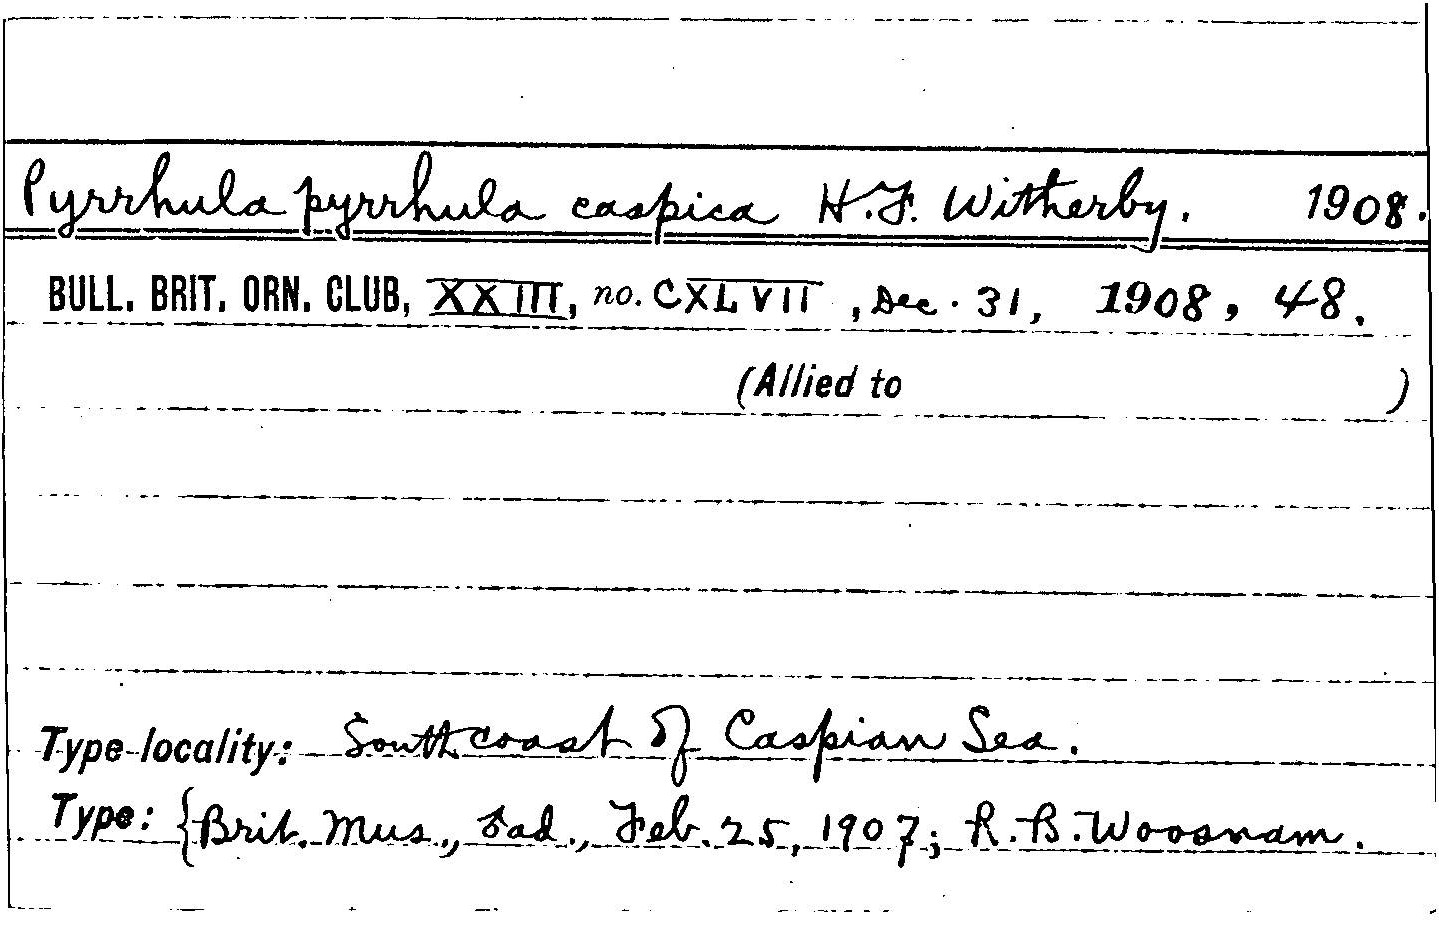 Pyrrhula pyrrhula caspica H.F. Witherby. 1908.
BULL. BRIT. ORN. CLUB, XXIII, no. CXLVII, Dec. 31, 1908, 48.
(Allied to )
Type-locality: South coast of Caspian Sea.
Type: {Brit. Mus., ♂ad., Feb. 25, 1907; R.B. Woosnam.